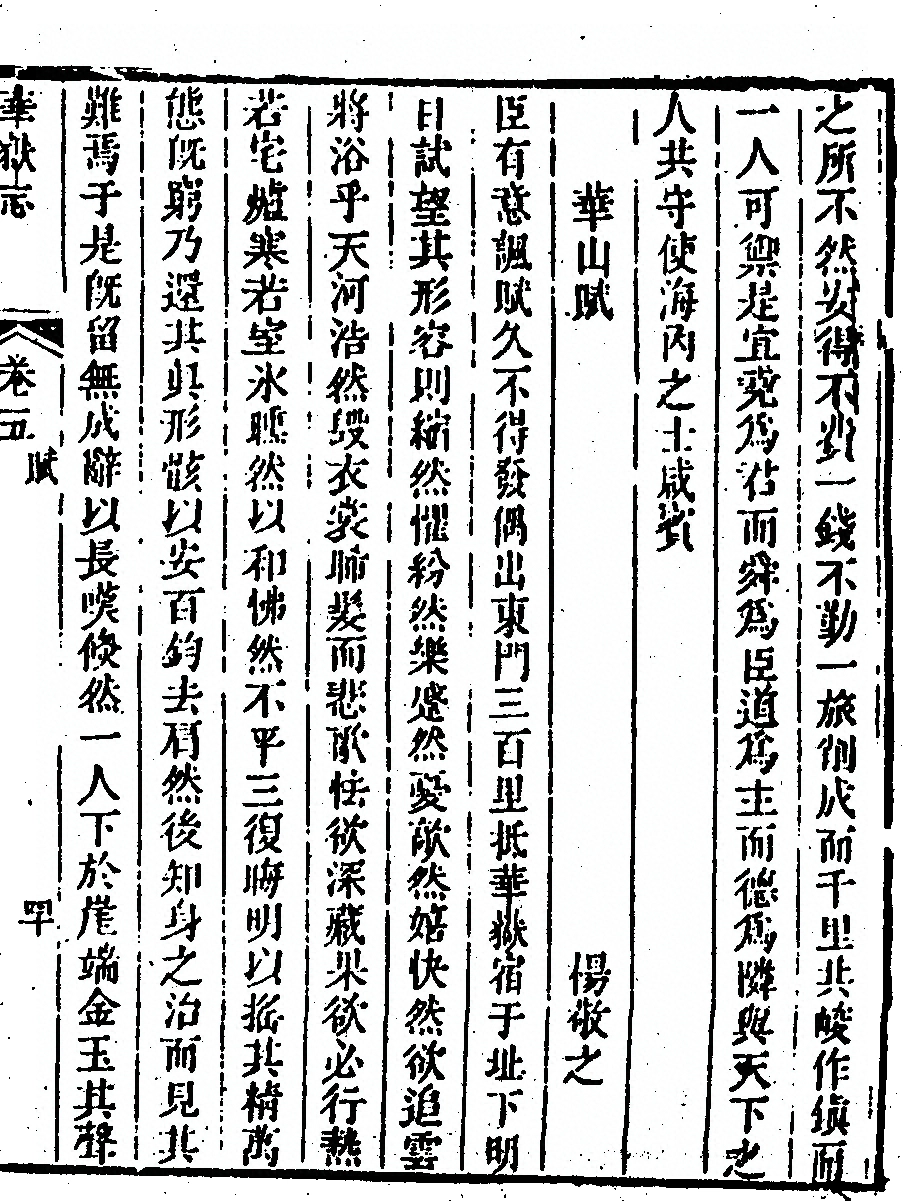 之所不然安得不費一錢不勤一旅削成而千里共峻作鎮而
一人可禦是宜堯為君而舜為臣道為主而德為隣與天下之
人共守使海內之士咸賓
華山賦
楊敬之
臣有意諷賦久不得發偶出東門三百里抵華嶽宿于址下明
日試望其形容則縮然懼紛然樂蹙然憂歊然嬉快然欲追雲
將浴乎天河浩然毀衣裳晞髮而悲歌怯欲深藏果欲必行熱
若宅爐寒若室氷聽然以和怫然不平三復晦明以搖其精萬
態既窮乃還其眞形骸以安百鈞去肩然後知身之治而見其
難焉于是既留無成辭以長嘆倐然一人下於崖端金玉其聲
華嶽志
卷五
賦
罕